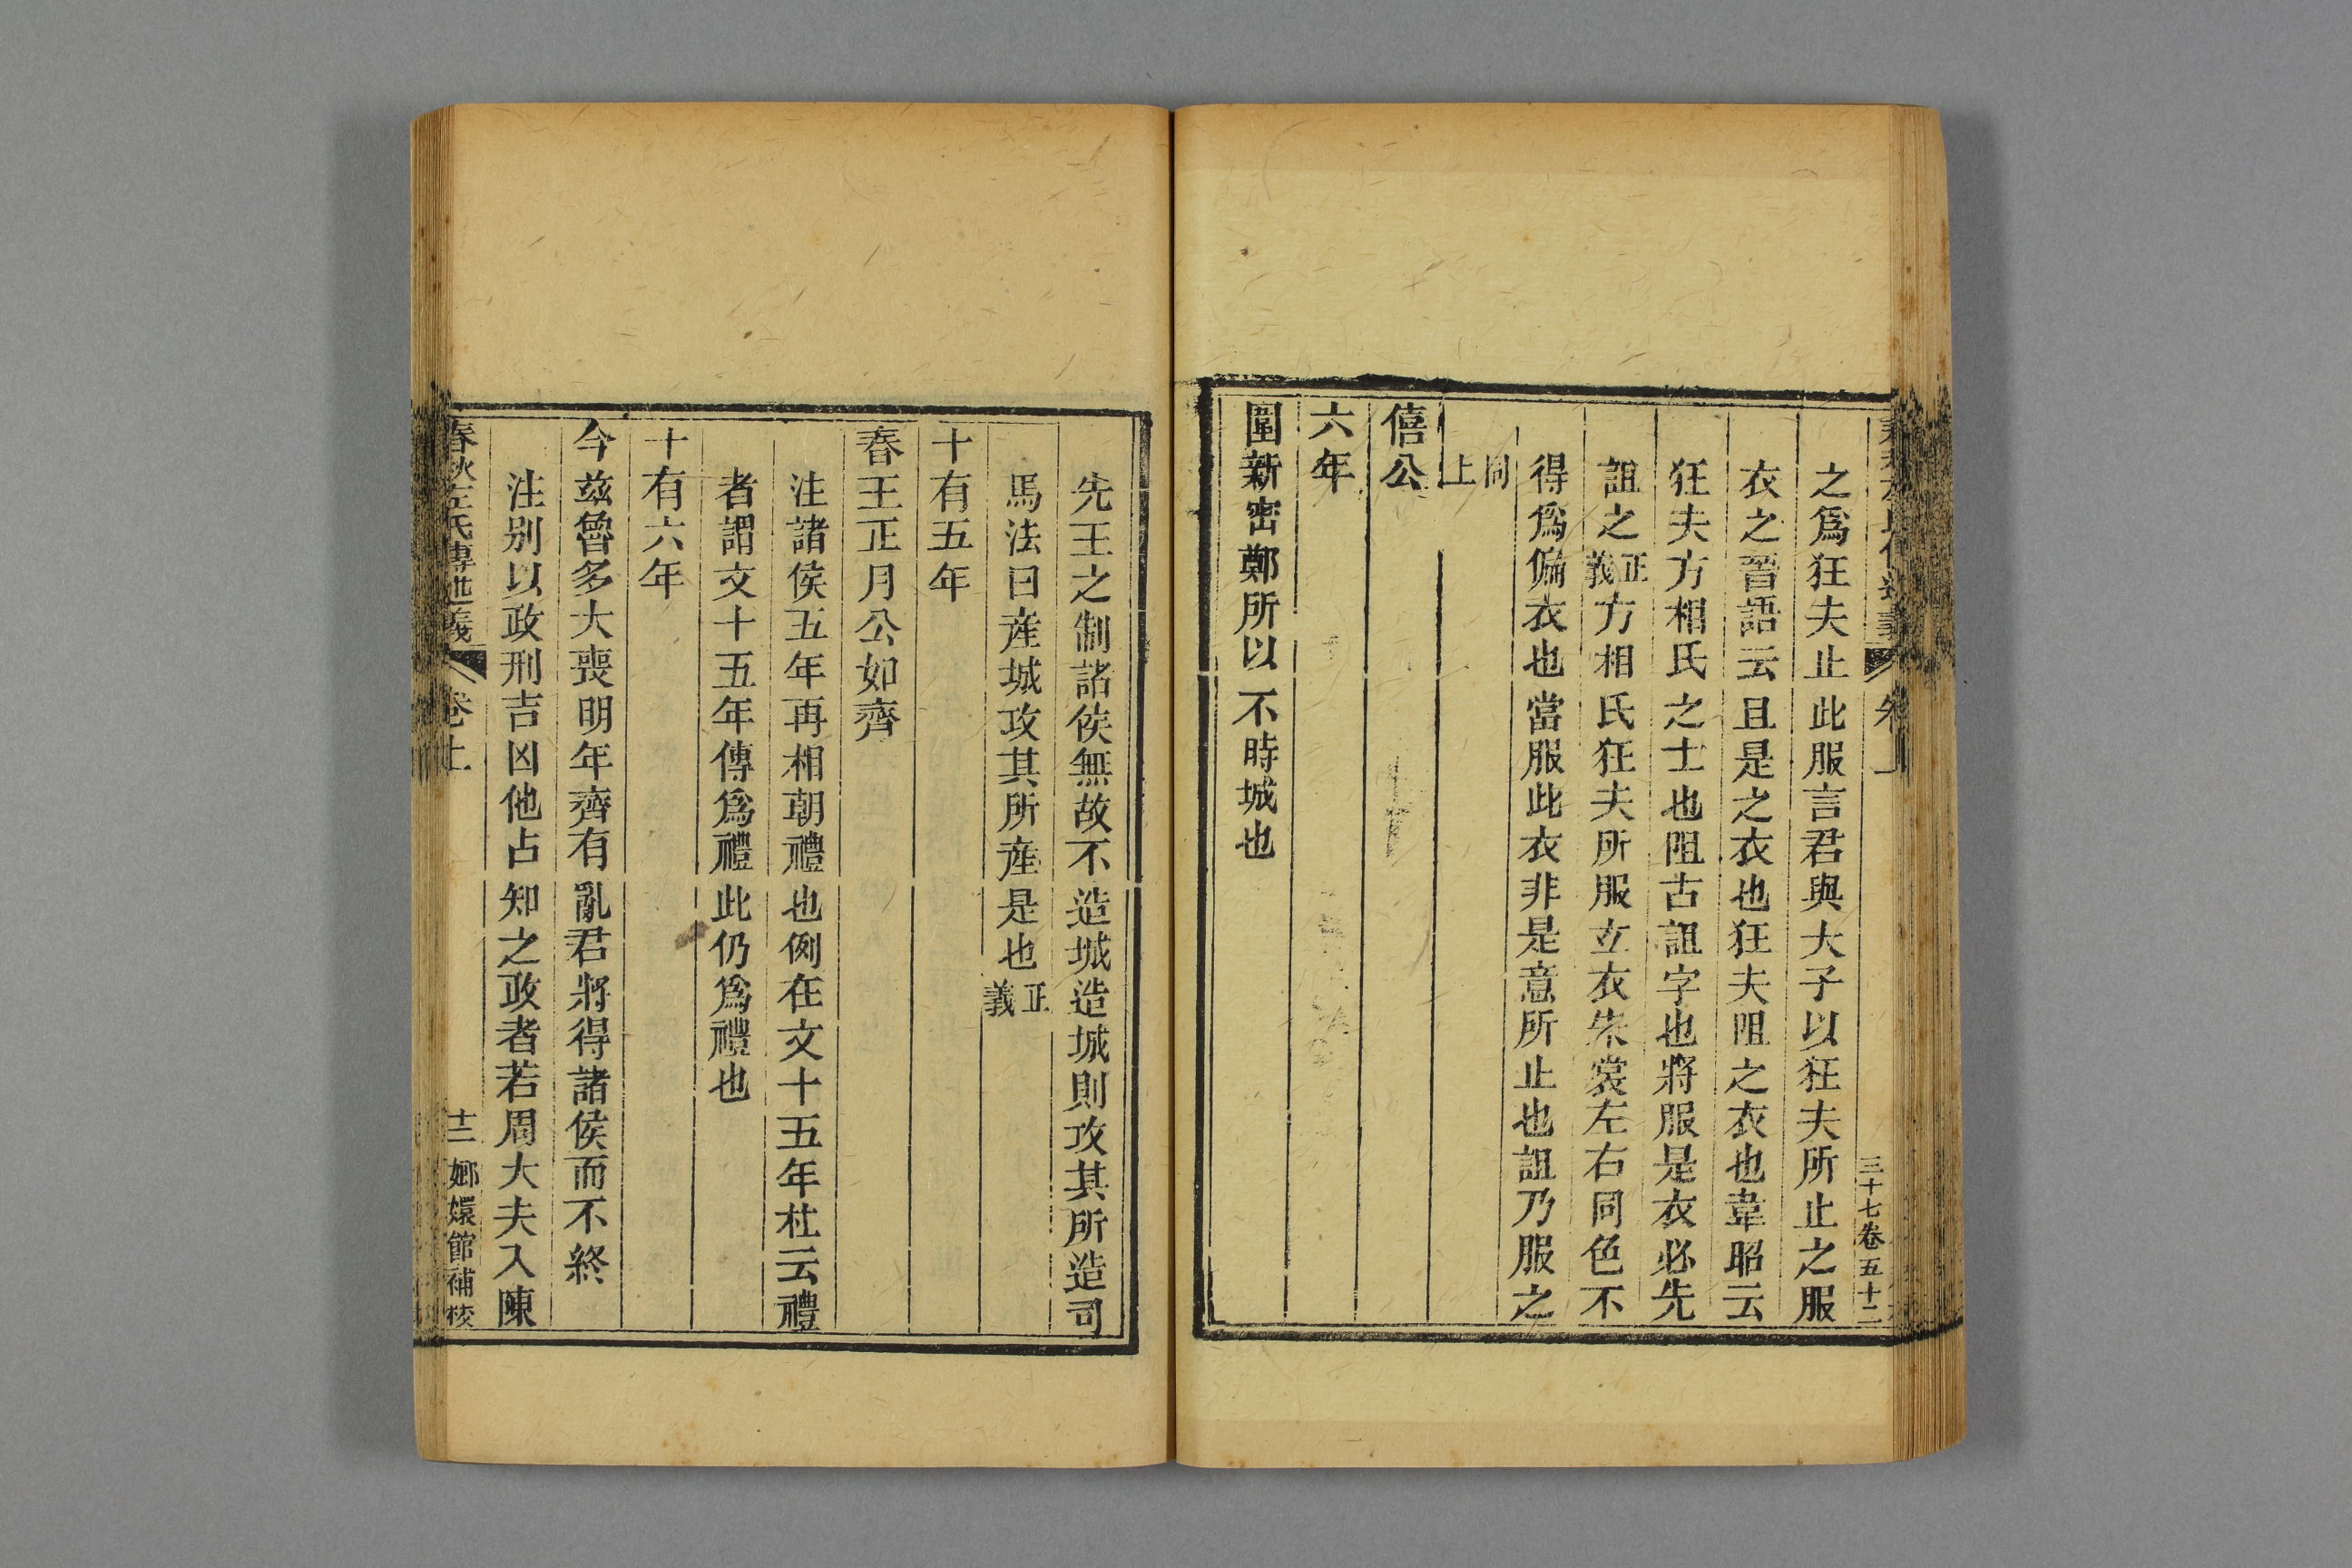 三十七卷五十二
之爲狂夫止此服言君與大子以狂夫所止之服
衣之晉語云且是之衣也狂夫阻之衣也韋昭云
狂夫方相氏之士也阻古詛字也將服是衣必先
詛之正義方相氏狂夫所服玄衣朱裳左右同色不
得爲偏衣也當服此衣非是意所止也詛乃服之
同上
僖公
六年
圍新密鄭所以不時城也
先王之制諸侯無故不造城造城則攻其所造司
馬法曰産城攻其所産是也正義
十有五年
春王正月公如齊
注諸侯五年再相朝禮也例在文十五年杜云禮
者謂文十五年傳爲禮此仍爲禮也
十有六年
今茲魯多大喪明年齊有亂君將得諸侯而不終
注別以政刑吉凶他占知之政者若周大夫入陳
春秋左氏傳述義 卷上 十二 嫏嬛館補校